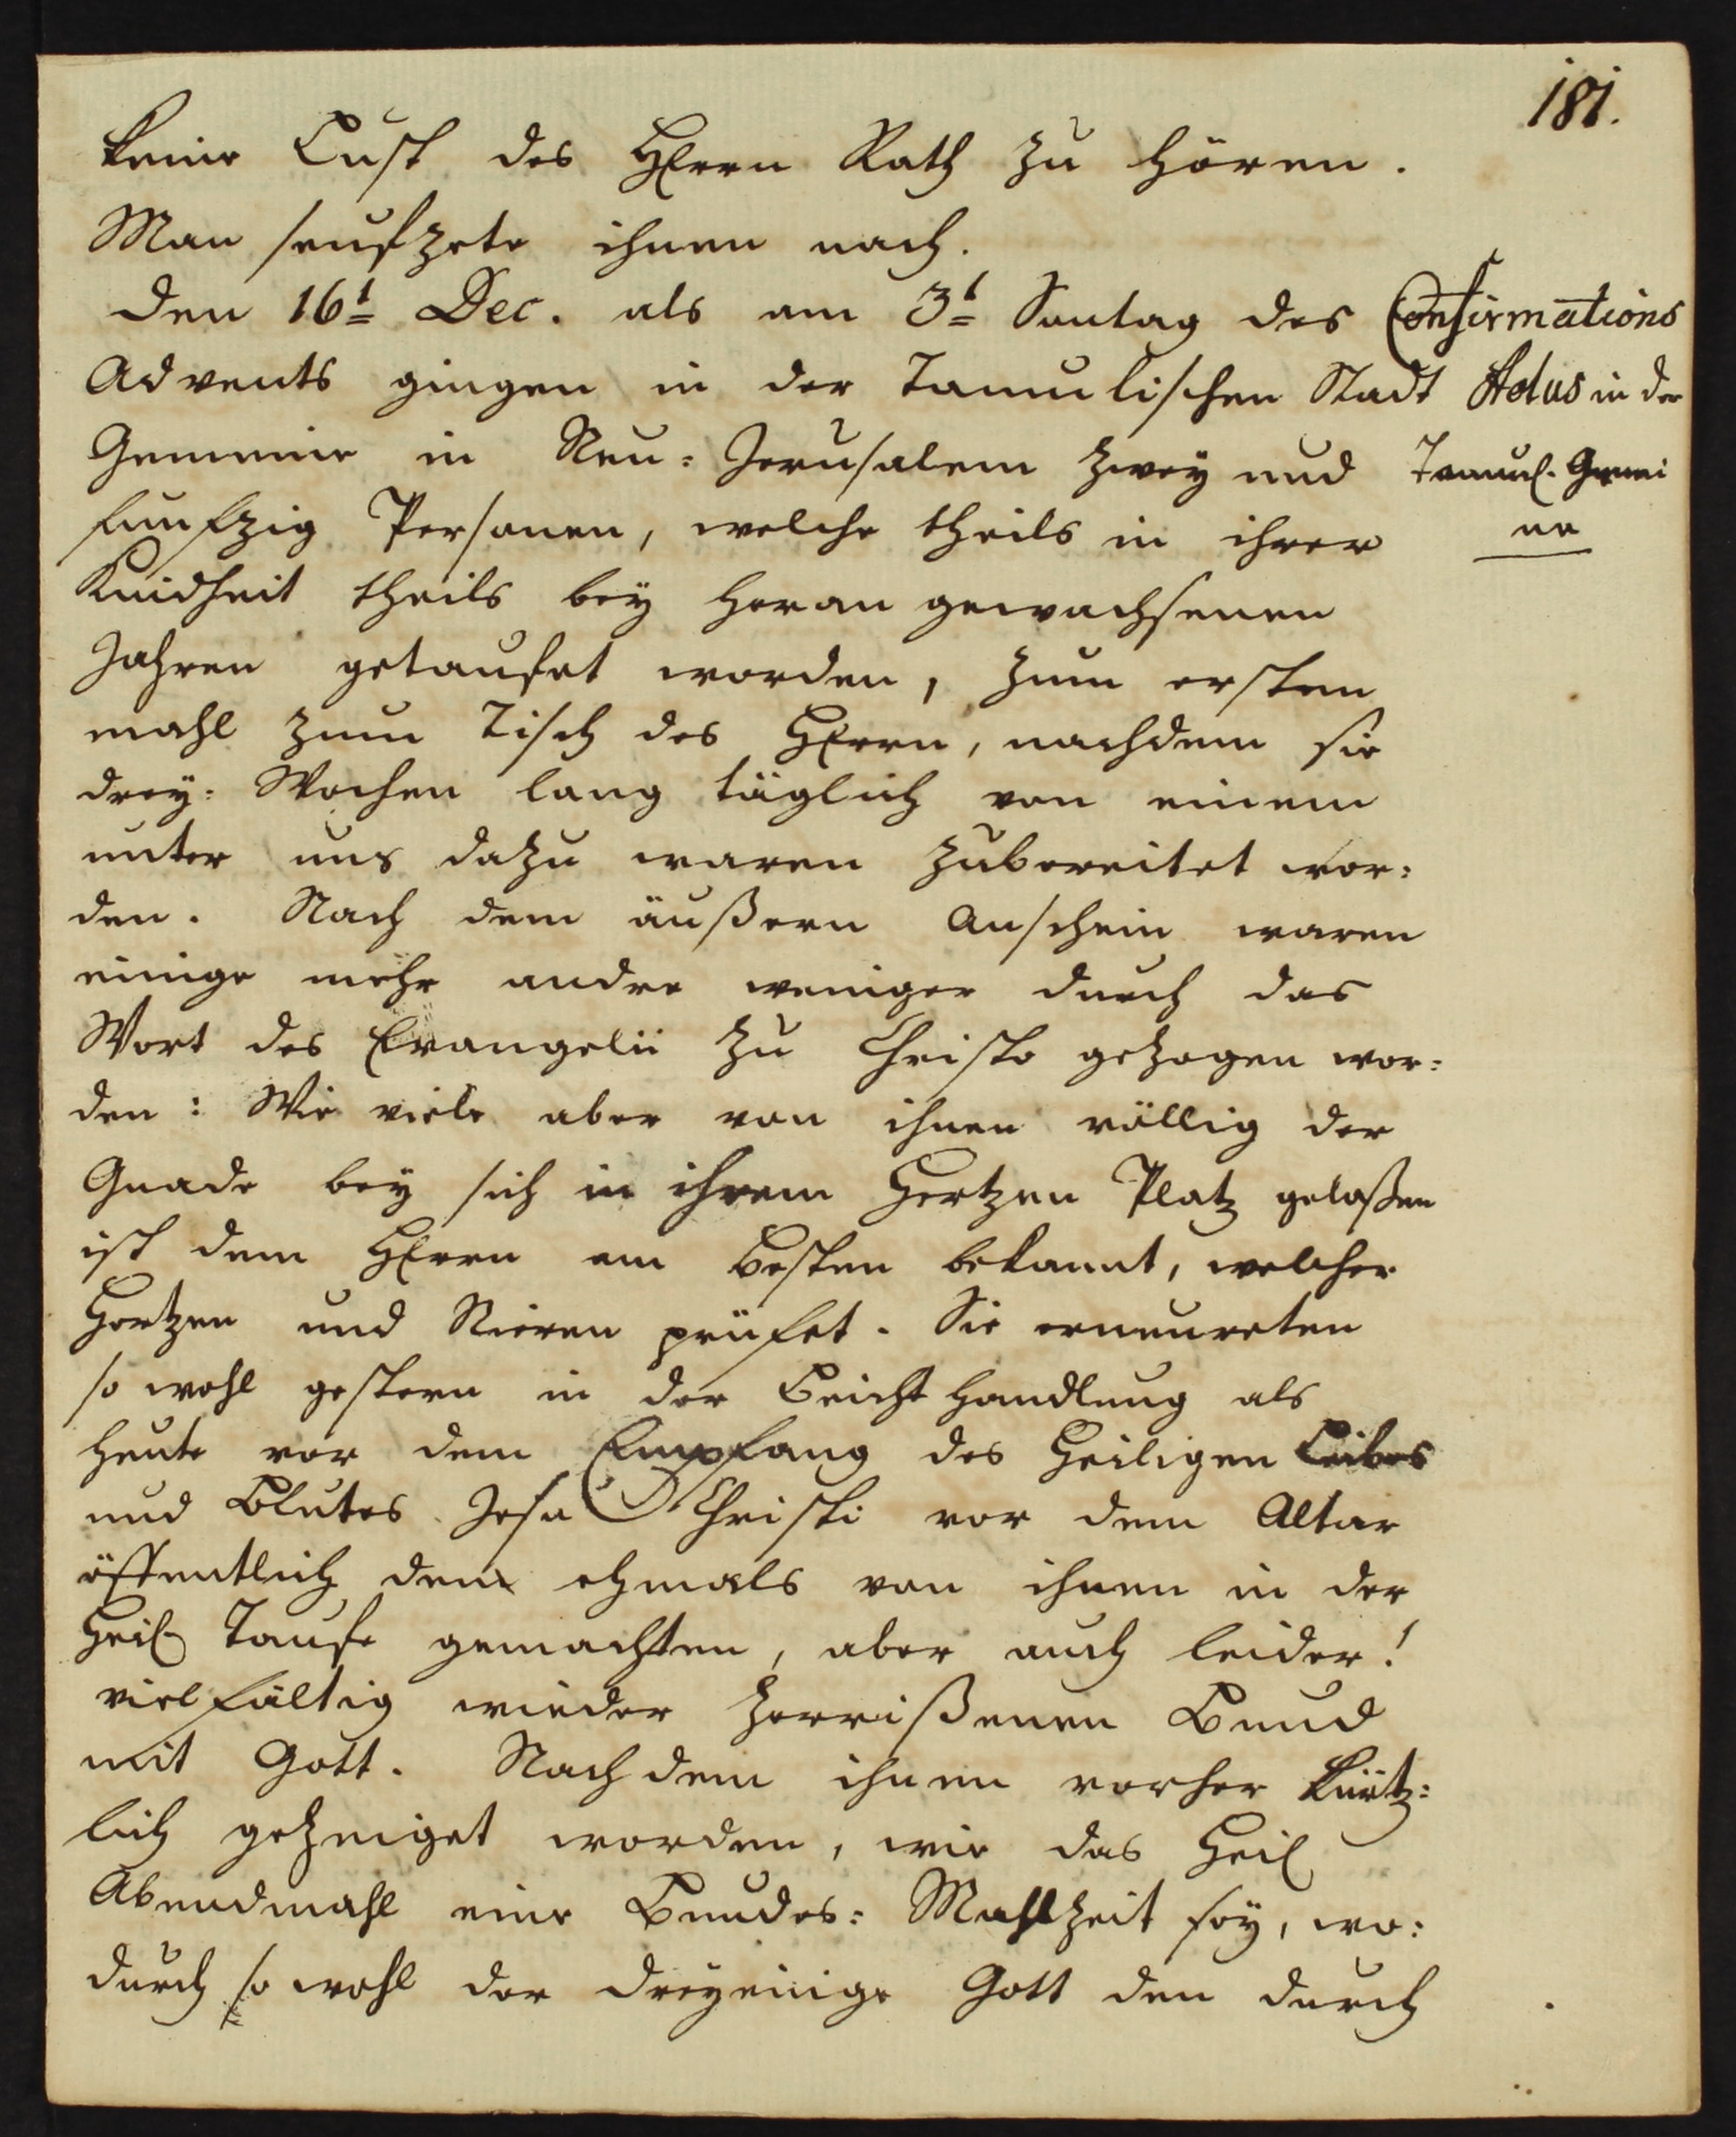 181.
keine Lust des HErrn Rath zu hören.
Man seufzete ihnen nach.
den 16t Dec. als am 3t Sontag des
Advents gingen in der Tamulischen Stadt
Gemeine in Neu-Jerusalem zwey und
funfzig Personen, welche theils in ihrer
Kindheit theils bey heran gewachsenen
Jahren getaufet worden, zum ersten
mahl zum Tisch des HErrn, nachdem sie
drey-Wochen lang täglich von einem
unter uns dazu waren zubereitet wor-
den. Nach dem äußern Anschein waren
einige mehr andre weniger durch das
Wort des Evangelii zu Christo gezogen wor-
den: Wie viele aber von ihnen völlig der
Gnade bey sich in ihrem Hertzen Platz gelaßen
ist dem HErrn am Besten bekannt, welcher
Hertzen und Nieren prüfet. Sie erneureten
so wohl gestern in der Beicht Handlung als
heute vor dem Empfang des Heiligen Leibes
und Blutes Jesu Christi vor dem Altar
öffentlich den ehmals von ihnen in der
Heil Taufe gemachten, aber auch leider!
vielfältig wieder zerrißenen Bund
mit Gott. Nach dem ihnen vorher kürtz-
lich gezeiget worden, wie das Heil
Abendmahl eine Bundes-Mahlzeit sey, wo-
durch so wohl der dreyeinige Gott den durch
Confirmations
Actus in der
Tamul. Gemei
ne